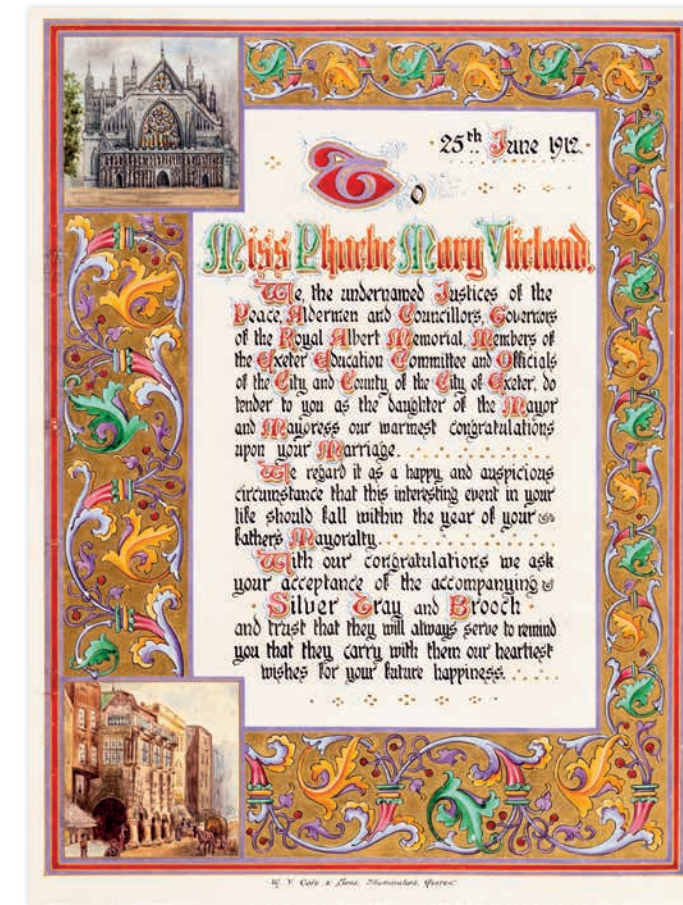 25th June 1912.
To
Miss Phoebe Mary Vlieland,
We, the undernamed Justices of the
Peace, Aldermen and Councillors, Governors
of the Royal Albert Memorial, Members of
the Exeter Education Committee and Officials
of the City and County of the City of Exeter, do
tender to you as the daughter of the Mayor
and Mayoress our warmest congratulations
upon your Marriage.
We regard it as a happy and auspicious
circumstance that this interesting event in your
life should fall within the year of your
father's Mayoralty.
With our congratulations we ask
your acceptance of the accompanying
Silver Tray and Brooch
and trust that they will always serve to remind
you that they carry with them our heartiest
wishes for your future happiness.
& Sons, Illuminators, Exeter.